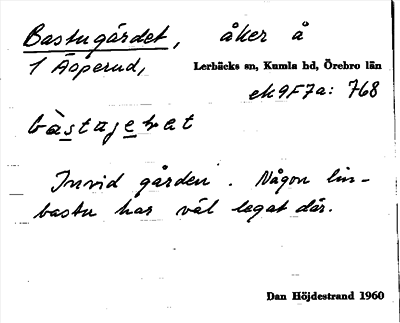 Bastugärdet, åker å
1 Åsperud,
Lerbäcks sn, Kumla hd, Örebro län
ek 9F7a: 768
Invid gården. Någon lin-
bastu har väl legat där.
Dan Höjdestrand 1960